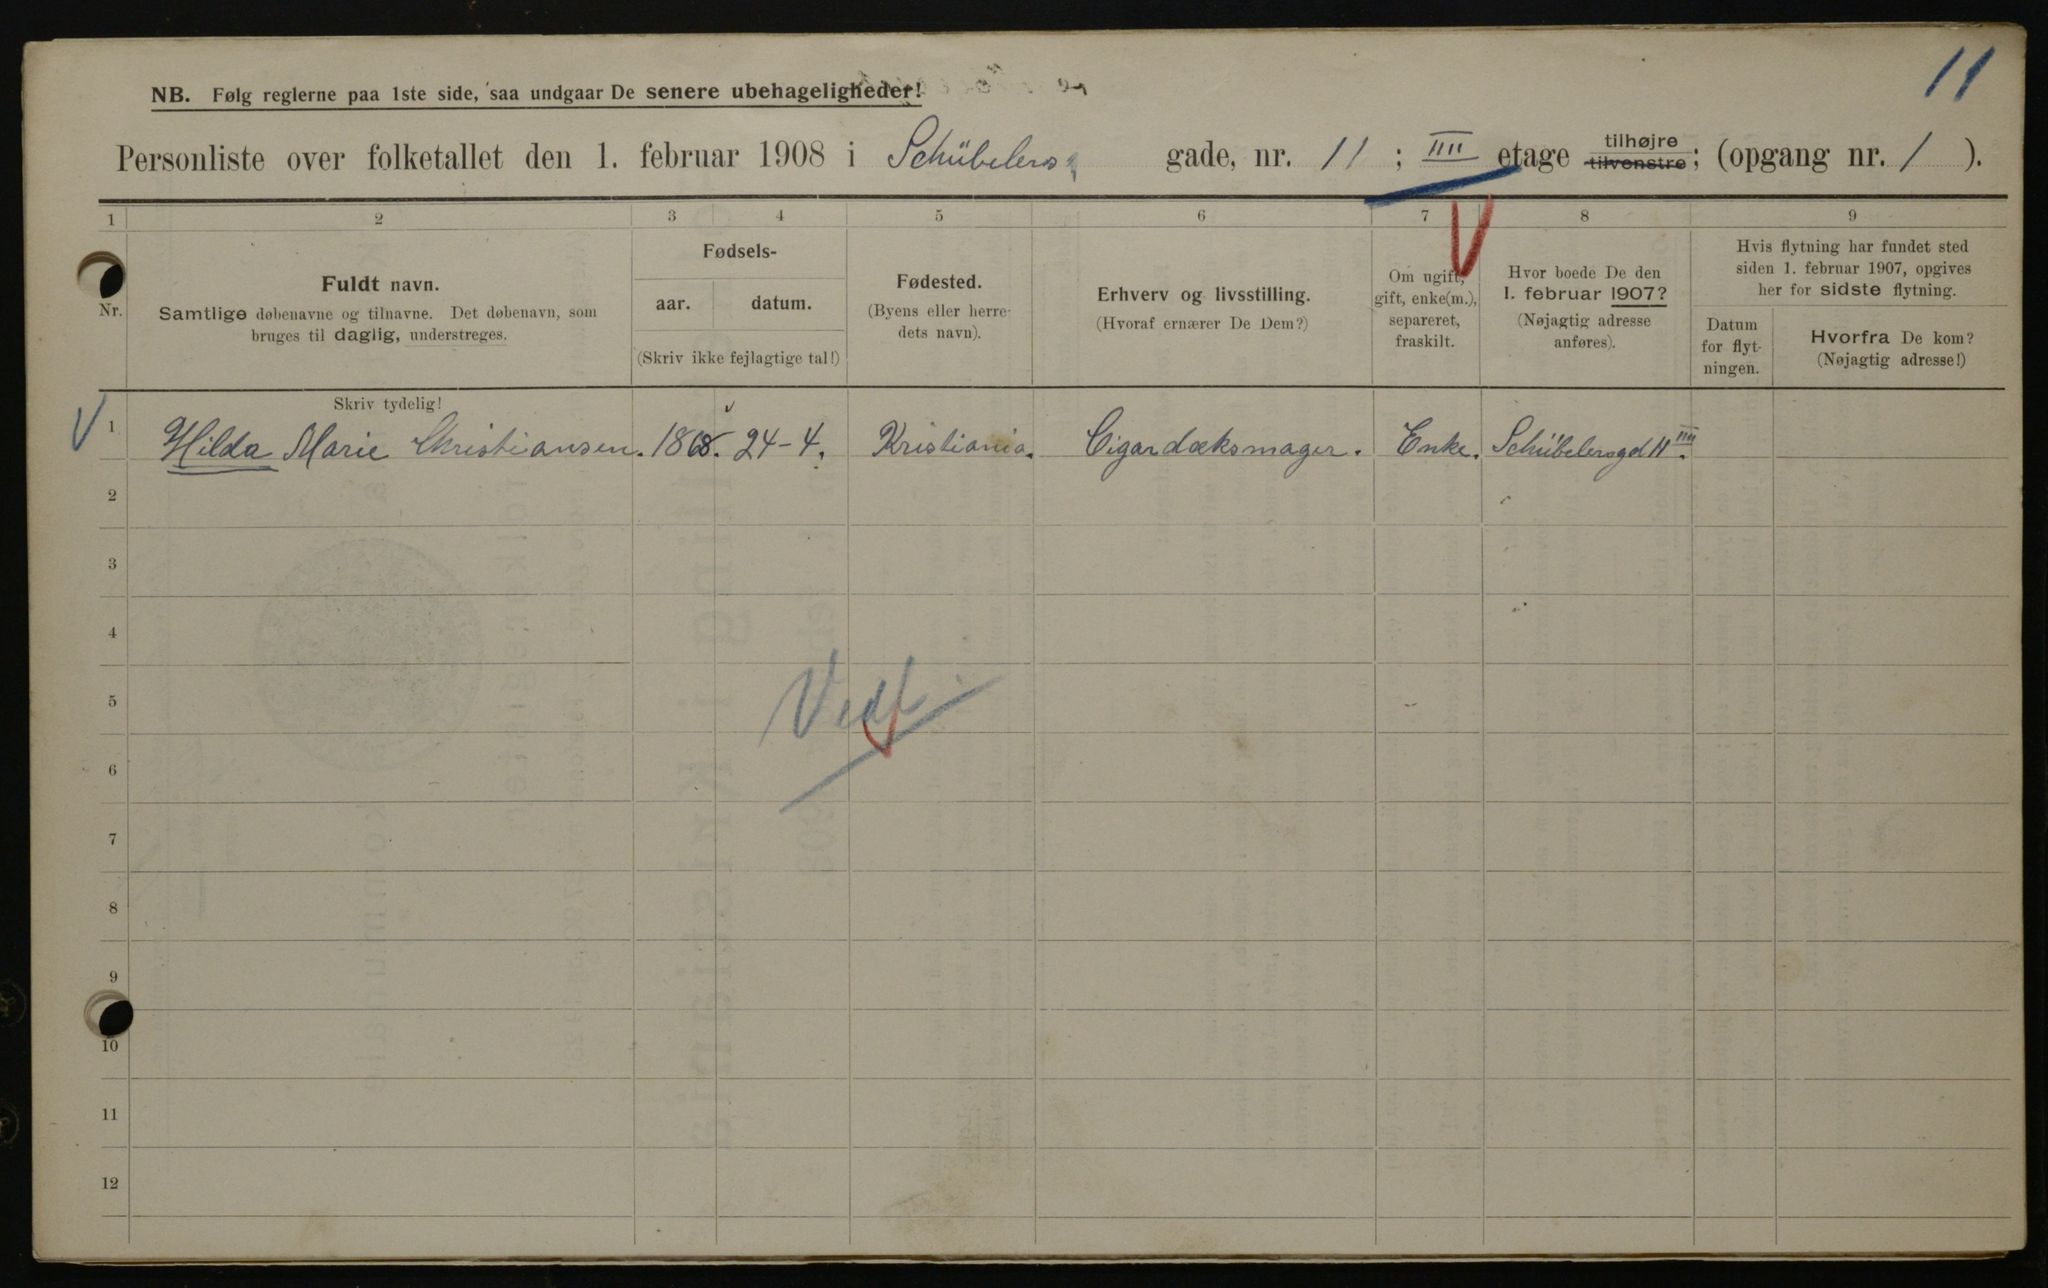 11
NB. Følg reglerne paa 1ste side, saa undgaar De senere ubehageligheder!
Personliste over folketallet den 1. februar 1908 i Schübelers gade, nr. 11 ; IIII etage tilhøjre tilvenstre; (opgang nr. 1 ).
1 2 3 4 5 6 7 8 9
Nr.
Fuldt navn.
Samtlige døbenavne og tilnavne. Det døbenavn, som
bruges til daglig, understreges.
Fødsels-
aar. datum.
(Skriv ikke fejlagtige tal!)
Fødested.
(Byens eller herre-
dets navn).
Erhverv og livsstilling.
(Hvoraf ernærer De Dem?)
Om ugift,
gift, enke(m.),
separeret,
fraskilt.
Hvor boede De den
1. februar 1907?
(Nøjagtig adresse
anføres).
Hvis flytning har fundet sted
siden 1. februar 1907, opgives
her for sidste flytning.
Datum
for flyt-
ningen.
Hvorfra De kom?
(Nøjagtig adresse!)
Skriv tydelig!
1 Hilda Marie Christiansen. 1868. 24-4. Kristiania. Cigardæksmager. Enke. Schübelersgd 11 IIII.
2
3
4
5
6
7
8
9
10
11
12